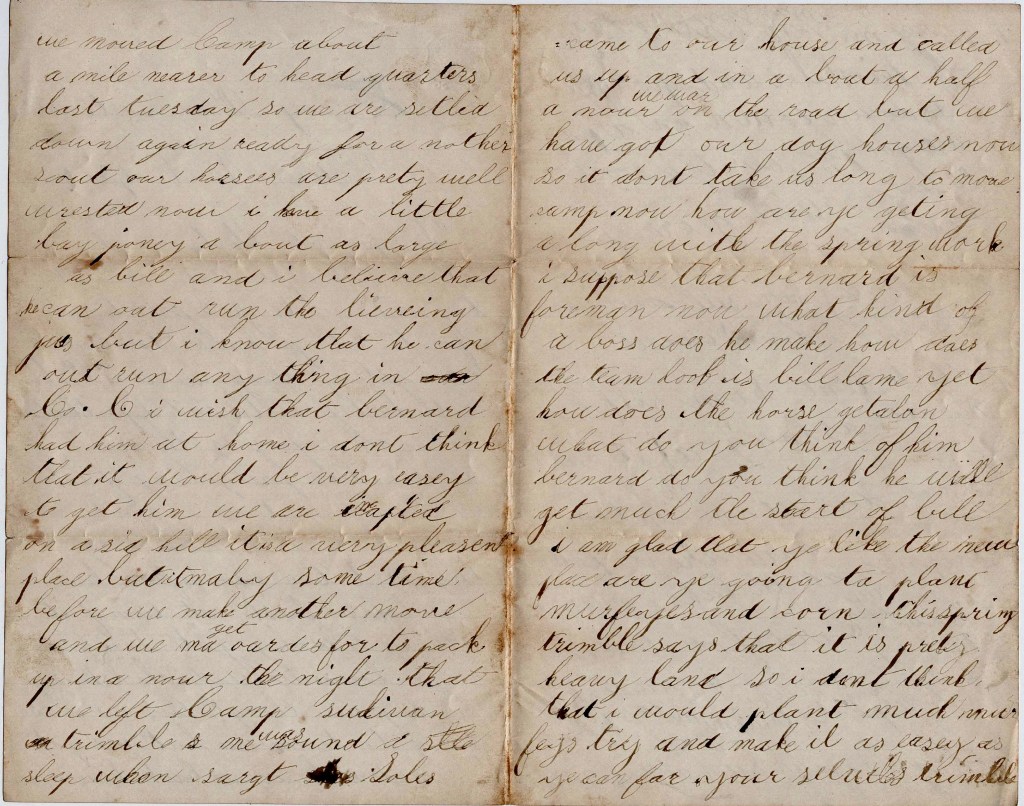 we moved Camp about
a mile nearer to head quarters
last tuesday so we are setlid
down again ready for a nother
scout our horsees are prety well
wrested now i have a little
bay poney a bout as large
as bill and i believe that
he can out run the lieveing
but i know that he can
out run any thing in
Co. C i wish that bernard
had him at home i dont think
that it would be very easey
to get him we are
on a sid hill it is a very pleasent
place but it maby some time
before we make another move
and we ma get oardes for to pack
up in a nour the night that
we left Camp sulivan
trimble & me was sound a
sleep when sargt Soles
came to our house and called
us up and in a bout a half
a nour we war on the road but we
have got our dog houses now
so it dont take us long to move
camp now how are ye geting
a long with the spring work
i suppose that bernard is
foreman now what kind of
a boss does he make how does
the team look is bill lame yet
how does the horse get alon
what do you think of him
bernard do you think he will
get much the start of bill
i am glad that ye like the new
place are ye going to plant
murfeyes and corn this sprin
trimble says that it is prety
heavy land so i dont think
that i would plant much mur
feys try and make it as easey as
ye can for your selves trimble